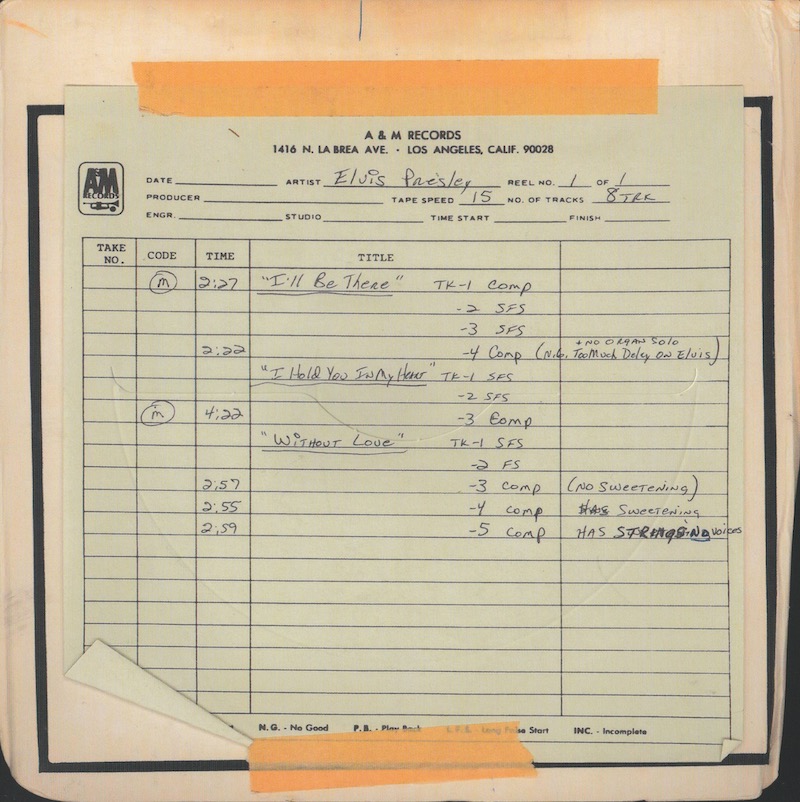 A & M RECORDS
1416 N. LA BREA AVE. · LOS ANGELES, CALIF. 90028
A&M
RECORDS
DATE ARTIST Elvis Presley REEL NO. 1 OF 1
PRODUCER TAPE SPEED 15 NO. OF TRACKS 8 TRK
ENGR. STUDIO TIME START FINISH
TAKE NO. CODE TIME TITLE
m 2:27 "I'll Be There" TK-1 Comp
-2 SFS
-3 SFS
+ NO ORGAN SOLO
2:22 -4 Comp (N.G. Too Much Delay ON Elvis)
"I Hold You In My Heart" TK-1 SFS
-2 SFS
m 4:22 -3 Comp
"WITHOUT LOVE" TK-1 SFS
-2 FS
2:57 -3 Comp (NO SWEETENING)
2:55 -4 Comp HAS SWEETENING
2:59 -5 Comp HAS STRINGS NO VOICES
N.G. - No Good P.B. - Play Back L.F.S. - Long False Start INC. - Incomplete